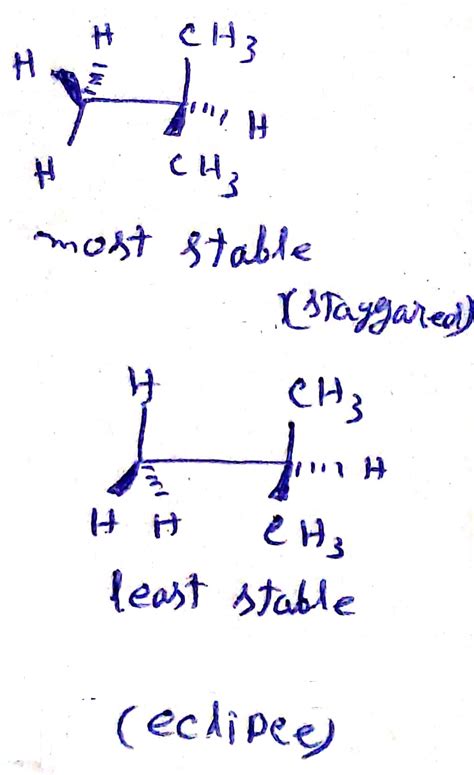 H CH3
H
H
H CH3
most stable
(staggared)
H CH3
H
H H CH3
least stable
(eclipee)